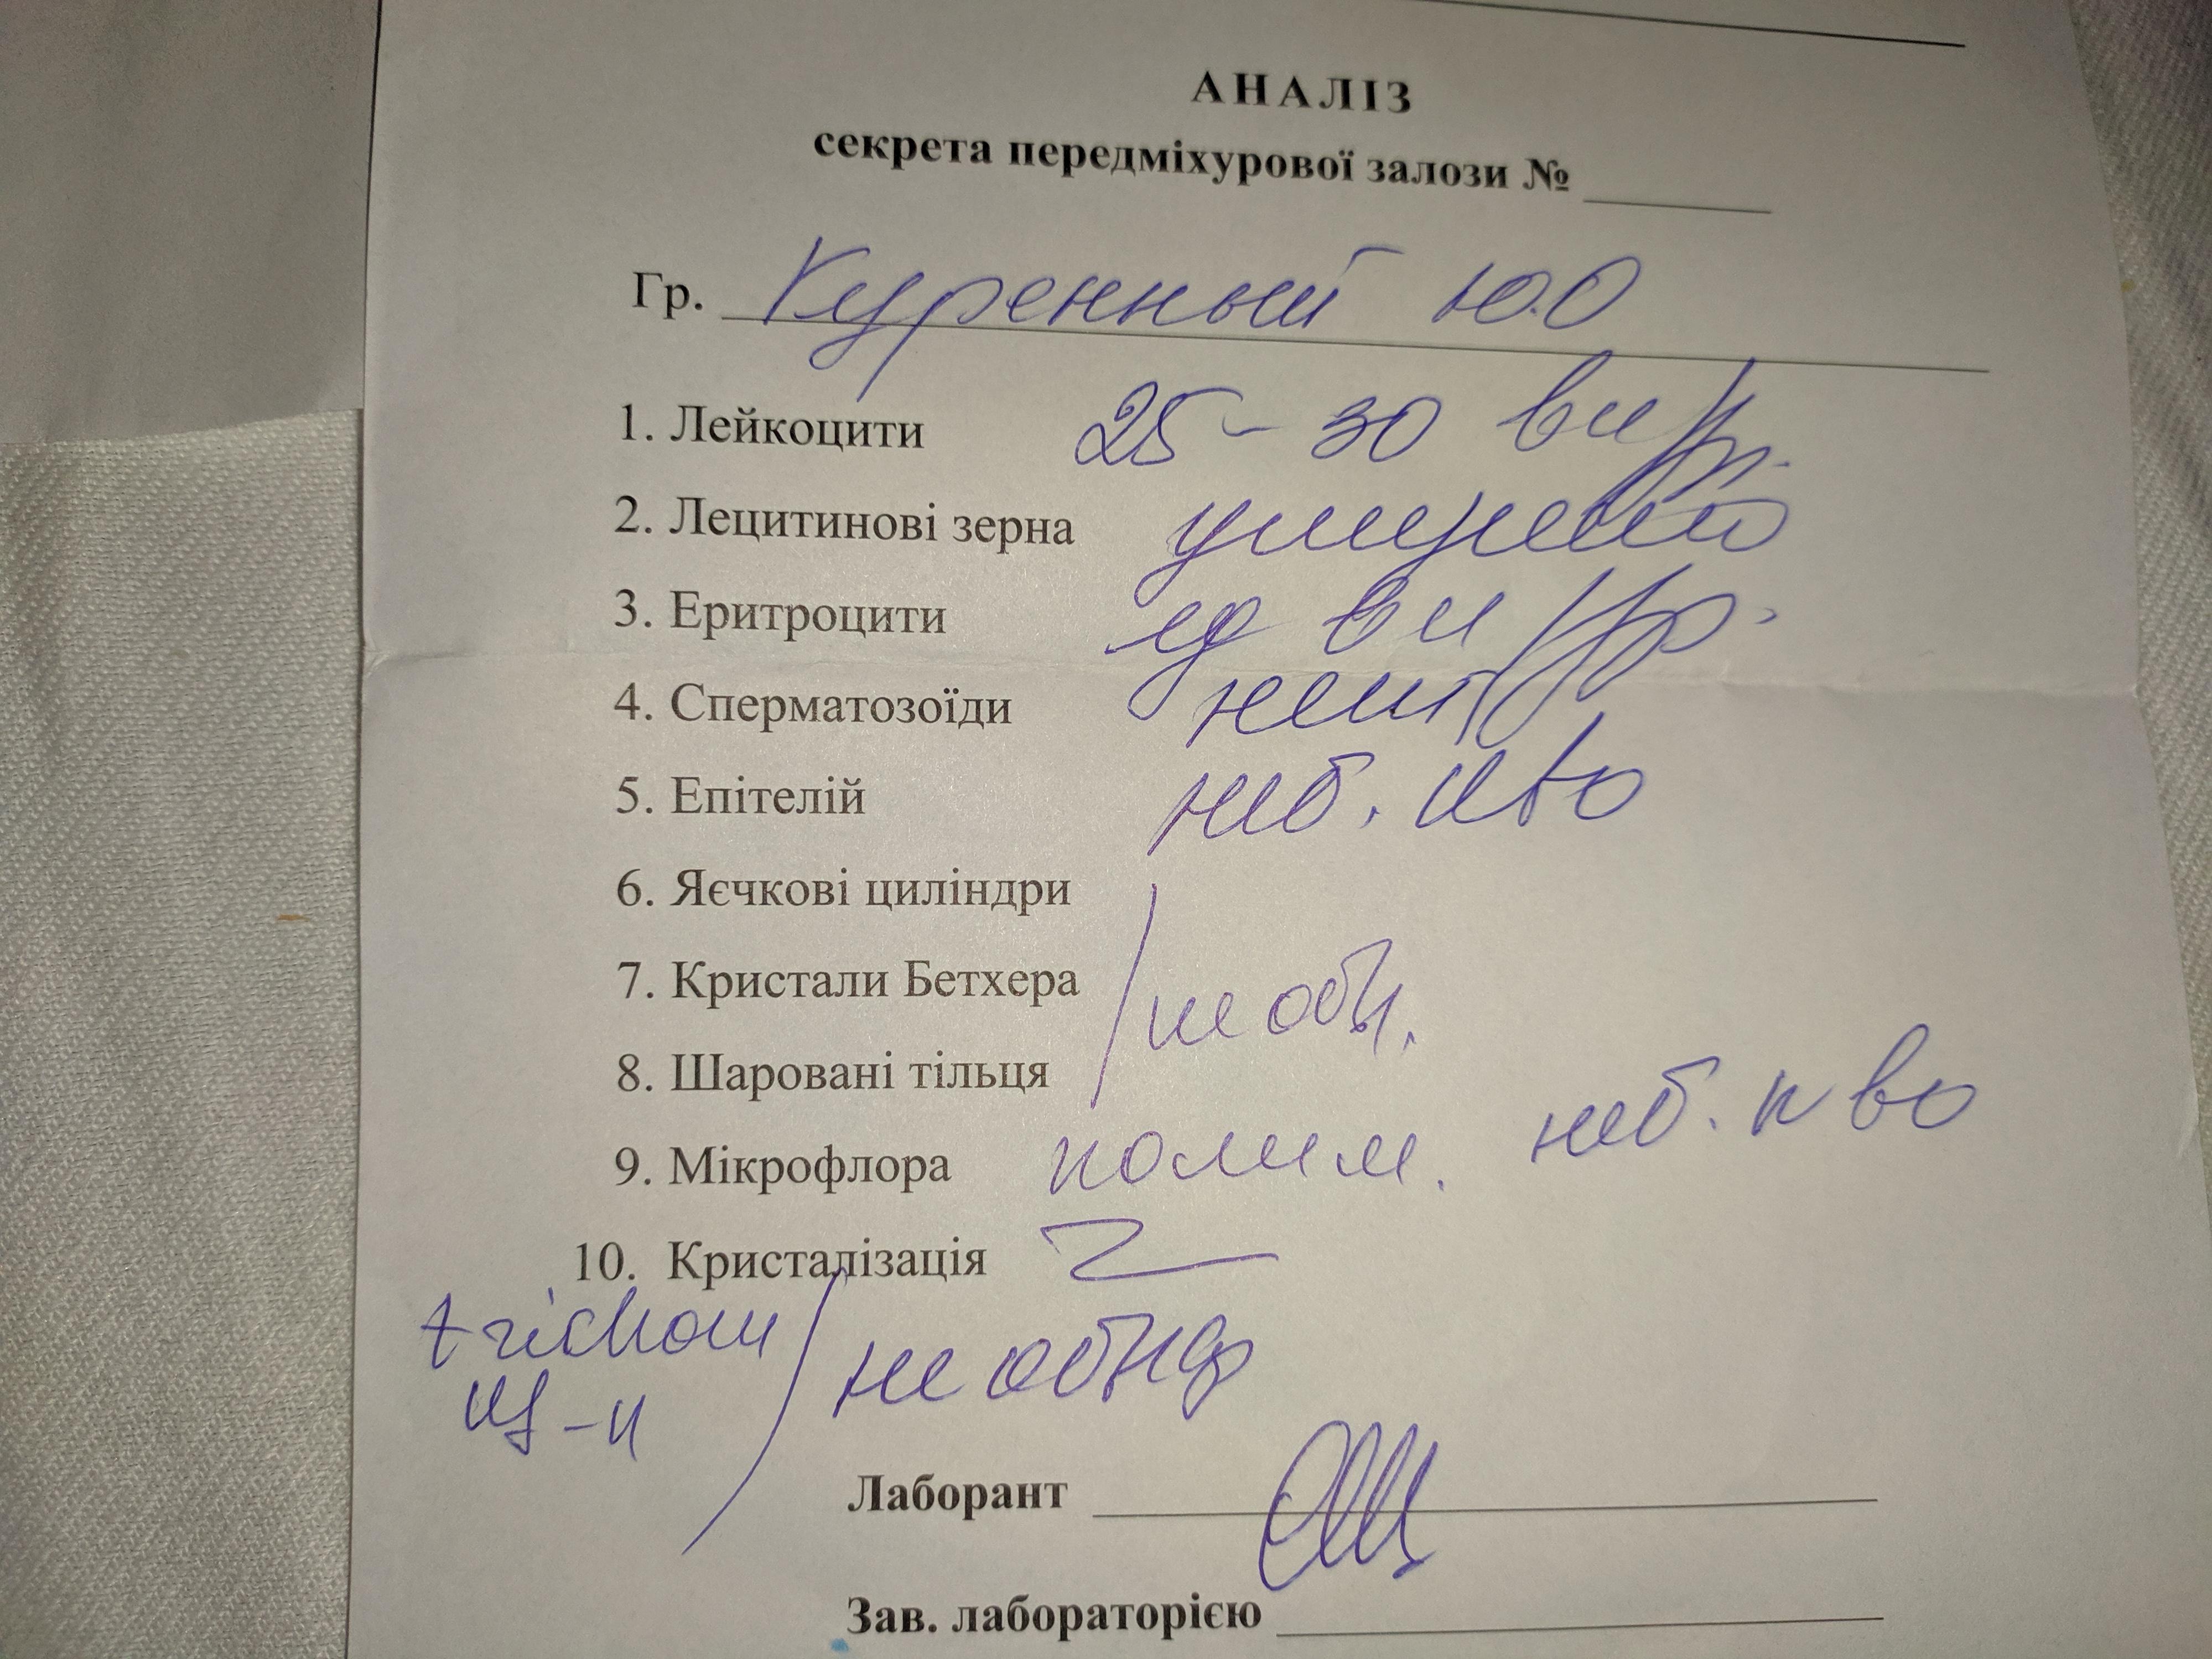 АНАЛІЗ
секрета передміхурової залози № ______
Гр. Куренный Ю.О
1. Лейкоцити 25-30 в п/зр.
2. Лецитинові зерна умерено
3. Еритроцити ед в п/зр.
4. Сперматозоїди нет
5. Епітелій неб. к-во
6. Яєчкові циліндри
7. Кристали Бетхера не обн.
8. Шаровані тільця
9. Мікрофлора полим. неб. к во
10. Кристалізація
trichom
не обнар
Лаборант
Зав. лабораторією